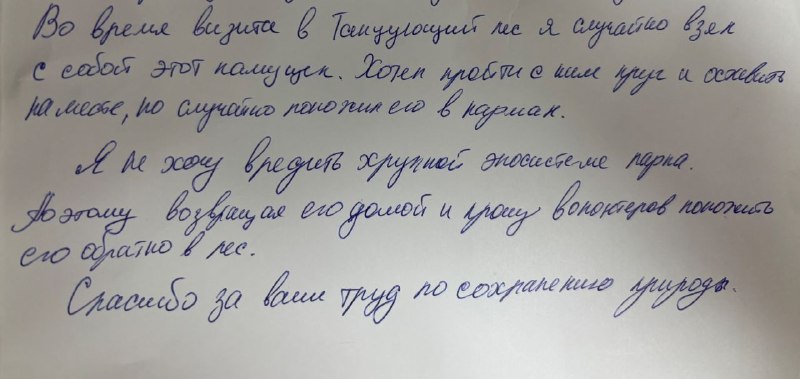 Во время визита в Танцующий лес я случайно взял
с собой этот камушек. Хотел пройти с ним круг и оставить
на месте, но случайно положил его в карман.
Я не хочу вредить хрупкой экосистеме парка.
Поэтому возвращая его домой и прошу волонтеров положить
его обратно в лес.
Спасибо за ваш труд по сохранению природы.